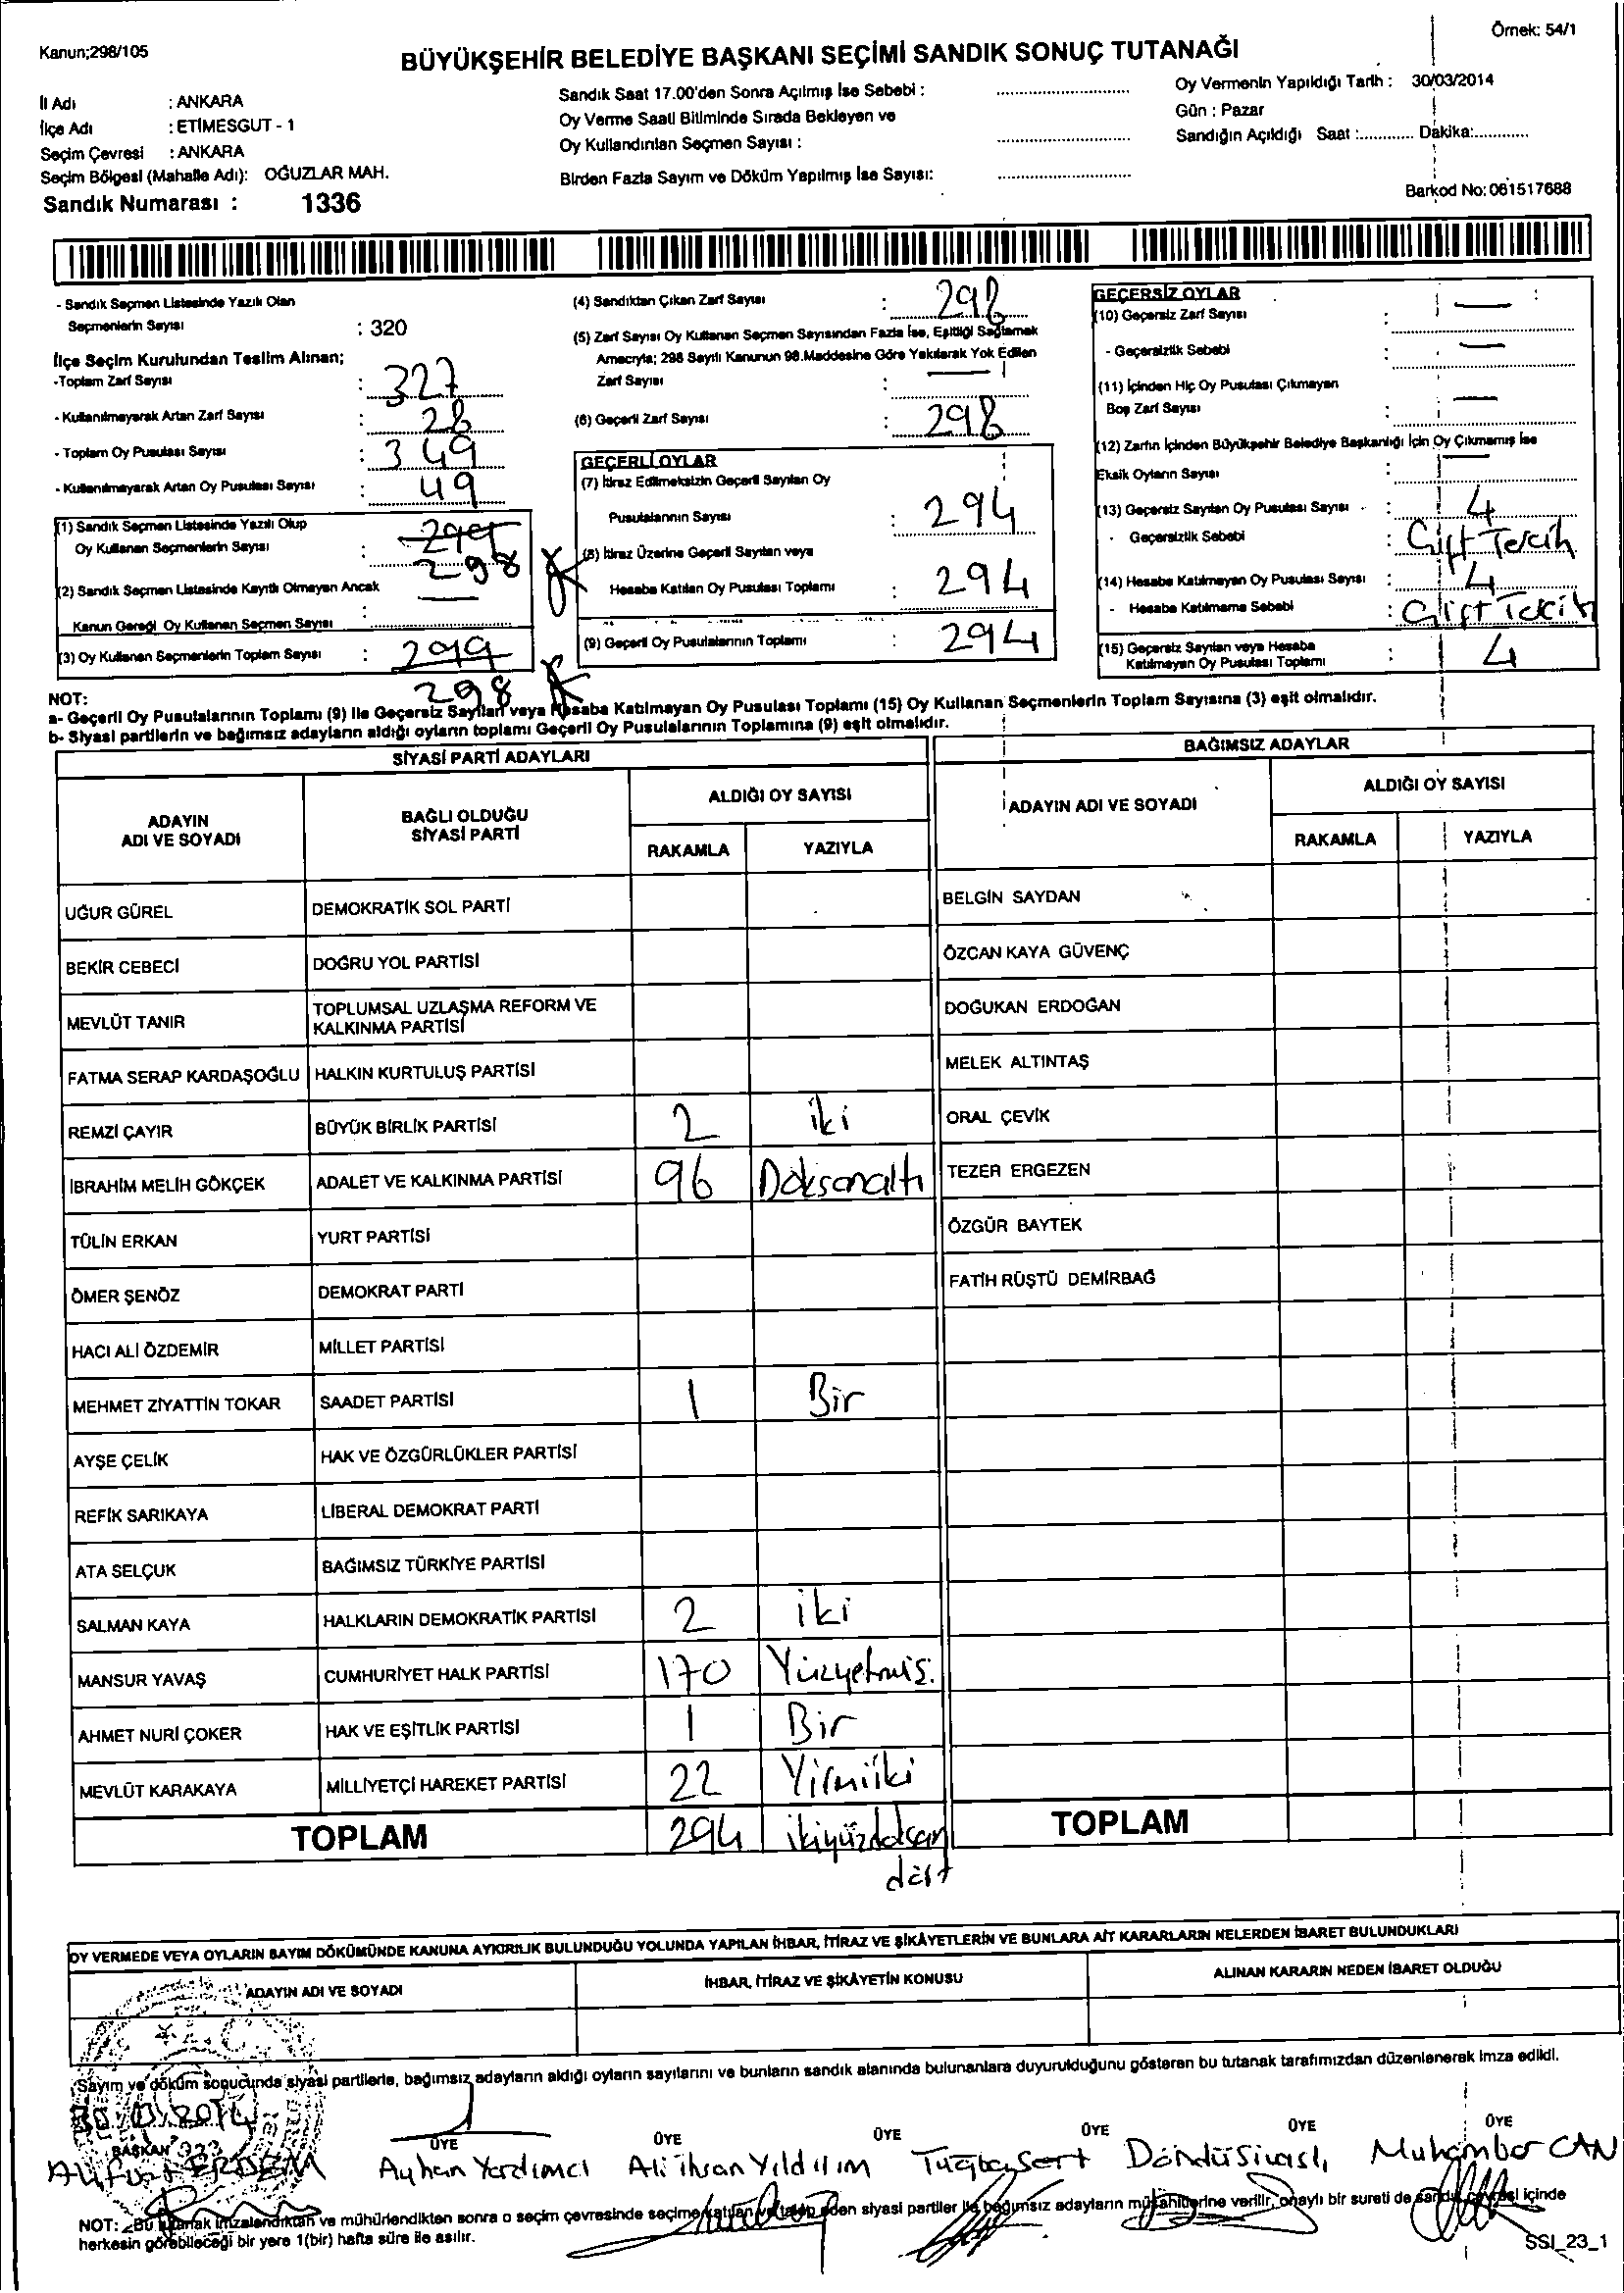 Kanun;298/105
Örnek: 54/1
BÜYÜKŞEHİR BELEDİYE BAŞKANI SEÇİMİ SANDIK SONUÇ TUTANAĞI
İl Adı : ANKARA
İlçe Adı : ETİMESGUT - 1
Seçim Çevresi : ANKARA
Seçim Bölgesi (Mahalle Adı): OĞUZLAR MAH.
Sandık Numarası : 1336
Sandık Saat 17.00'den Sonra Açılmış İse Sebebi :
Oy Verme Saati Bitiminde Sırada Bekleyen ve
Oy Kullandırılan Seçmen Sayısı :
Birden Fazla Sayım ve Döküm Yapılmış İse Sayısı:
Oy Vermenin Yapıldığı Tarih : 30/03/2014
Gün : Pazar
Sandığın Açıldığı Saat :........... Dakika:...........
Barkod No: 061517688
- Sandık Seçmen Listesinde Yazılı Olan
Seçmenlerin Sayısı : 320
İlçe Seçim Kurulundan Teslim Alınan;
-Toplam Zarf Sayısı : 327
- Kullanılmayarak Artan Zarf Sayısı : 28
- Toplam Oy Pusulası Sayısı : 349
- Kullanılmayarak Artan Oy Pusulası Sayısı : 49
(1) Sandık Seçmen Listesinde Yazılı Olup
Oy Kullanan Seçmenlerin Sayısı : 299
298
(2) Sandık Seçmen Listesinde Kayıtlı Olmayan Ancak —
Kanun Gereği Oy Kullanan Seçmen Sayısı :
(3) Oy Kullanan Seçmenlerin Toplam Sayısı : 299
298
(4) Sandıktan Çıkan Zarf Sayısı : 298
(5) Zarf Sayısı Oy Kullanan Seçmen Sayısından Fazla İse, Eşitliği Sağlamak
Amacıyla; 298 Sayılı Kanunun 98.Maddesine Göre Yakılarak Yok Edilen
Zarf Sayısı : —
(6) Geçerli Zarf Sayısı : 298
GEÇERLİ OYLAR
(7) İtiraz Edilmeksizin Geçerli Sayılan Oy
Pusulalarının Sayısı : 294
(8) İtiraz Üzerine Geçerli Sayılan veya
Hesaba Katılan Oy Pusulası Toplamı : 294
(9) Geçerli Oy Pusulalarının Toplamı : 294
GEÇERSİZ OYLAR
(10) Geçersiz Zarf Sayısı : —
- Geçersizlik Sebebi : —
(11) İçinden Hiç Oy Pusulası Çıkmayan
Boş Zarf Sayısı : —
(12) Zarfın İçinden Büyükşehir Belediye Başkanlığı İçin Oy Çıkmamış İse
Eksik Oyların Sayısı : —
(13) Geçersiz Sayılan Oy Pusulası Sayısı : 4
- Geçersizlik Sebebi : Çift Tercih
(14) Hesaba Katılmayan Oy Pusulası Sayısı : 4
- Hesaba Katılmama Sebebi : Çift Tercih
(15) Geçersiz Sayılan veya Hesaba
Katılmayan Oy Pusulası Toplamı : 4
NOT:
a- Geçerli Oy Pusulalarının Toplamı (9) ile Geçersiz Sayılan veya Hesaba Katılmayan Oy Pusulası Toplamı (15) Oy Kullanan Seçmenlerin Toplam Sayısına (3) eşit olmalıdır.
b- Siyasi partilerin ve bağımsız adayların aldığı oyların toplamı Geçerli Oy Pusulalarının Toplamına (9) eşit olmalıdır.
SİYASİ PARTİ ADAYLARI
BAĞIMSIZ ADAYLAR
ADAYIN ADI VE SOYADI
BAĞLI OLDUĞU SİYASİ PARTİ
ALDIĞI OY SAYISI
RAKAMLA YAZIYLA
ADAYIN ADI VE SOYADI
ALDIĞI OY SAYISI
RAKAMLA YAZIYLA
UĞUR GÜREL DEMOKRATİK SOL PARTİ BELGİN SAYDAN
BEKİR CEBECİ DOĞRU YOL PARTİSİ ÖZCAN KAYA GÜVENÇ
MEVLÜT TANIR TOPLUMSAL UZLAŞMA REFORM VE KALKINMA PARTİSİ DOĞUKAN ERDOĞAN
FATMA SERAP KARDAŞOĞLU HALKIN KURTULUŞ PARTİSİ MELEK ALTINTAŞ
REMZİ ÇAYIR BÜYÜK BİRLİK PARTİSİ 2 iki ORAL ÇEVİK
İBRAHİM MELİH GÖKÇEK ADALET VE KALKINMA PARTİSİ 96 Doksanaltı TEZER ERGEZEN
TÜLİN ERKAN YURT PARTİSİ ÖZGÜR BAYTEK
ÖMER ŞENÖZ DEMOKRAT PARTİ FATİH RÜŞTÜ DEMİRBAĞ
HACI ALİ ÖZDEMİR MİLLET PARTİSİ
MEHMET ZİYATTİN TOKAR SAADET PARTİSİ 1 Bir
AYŞE ÇELİK HAK VE ÖZGÜRLÜKLER PARTİSİ
REFİK SARIKAYA LİBERAL DEMOKRAT PARTİ
ATA SELÇUK BAĞIMSIZ TÜRKİYE PARTİSİ
SALMAN KAYA HALKLARIN DEMOKRATİK PARTİSİ 2 iki
MANSUR YAVAŞ CUMHURİYET HALK PARTİSİ 170 Yüzyetmiş.
AHMET NURİ ÇOKER HAK VE EŞİTLİK PARTİSİ 1 Bir
MEVLÜT KARAKAYA MİLLİYETÇİ HAREKET PARTİSİ 22 Yirmiiki
TOPLAM 294 ikiyüzdoksan TOPLAM
dört
OY VERMEDE VEYA OYLARIN SAYIM DÖKÜMÜNDE KANUNA AYKIRILIK BULUNDUĞU YOLUNDA YAPILAN İHBAR, İTİRAZ VE ŞİKÂYETLERİN VE BUNLARA AİT KARARLARIN NELERDEN İBARET BULUNDUKLARI
ADAYIN ADI VE SOYADI İHBAR, İTİRAZ VE ŞİKÂYETİN KONUSU ALINAN KARARIN NEDEN İBARET OLDUĞU
Sayım ve döküm sonucunda siyasi partilerle, bağımsız adayların aldığı oyların sayılarını ve bunların sandık alanında bulunanlara duyurulduğunu gösteren bu tutanak tarafımızdan düzenlenerek imza edildi.
30/03/2014
BAŞKAN ÜYE ÜYE ÜYE ÜYE ÜYE ÜYE
ERDEM Ayhan Yardımcı Ali ihsan Yıldırım Tuğba Sert Döndü Sivaslı Muhamber CAN
NOT: Bu tutanak imzalandıktan ve mühürlendikten sonra o seçim çevresinde seçime katılan ve talep eden siyasi partiler ile bağımsız adayların müşahitlerine verilir, onaylı bir sureti de sandık çevresi içinde
herkesin görebileceği bir yere 1(bir) hafta süre ile asılır.
SSI_23_1